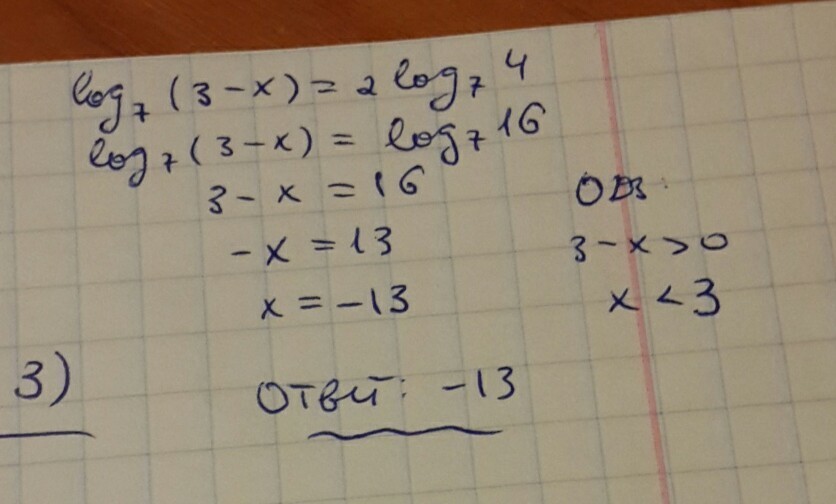 log₇(3-x) = 2log₇4
log₇(3-x) = log₇16
3-x = 16
-x = 13
x = -13
ОДЗ:
3-x>0
x<3
3)
Ответ: -13